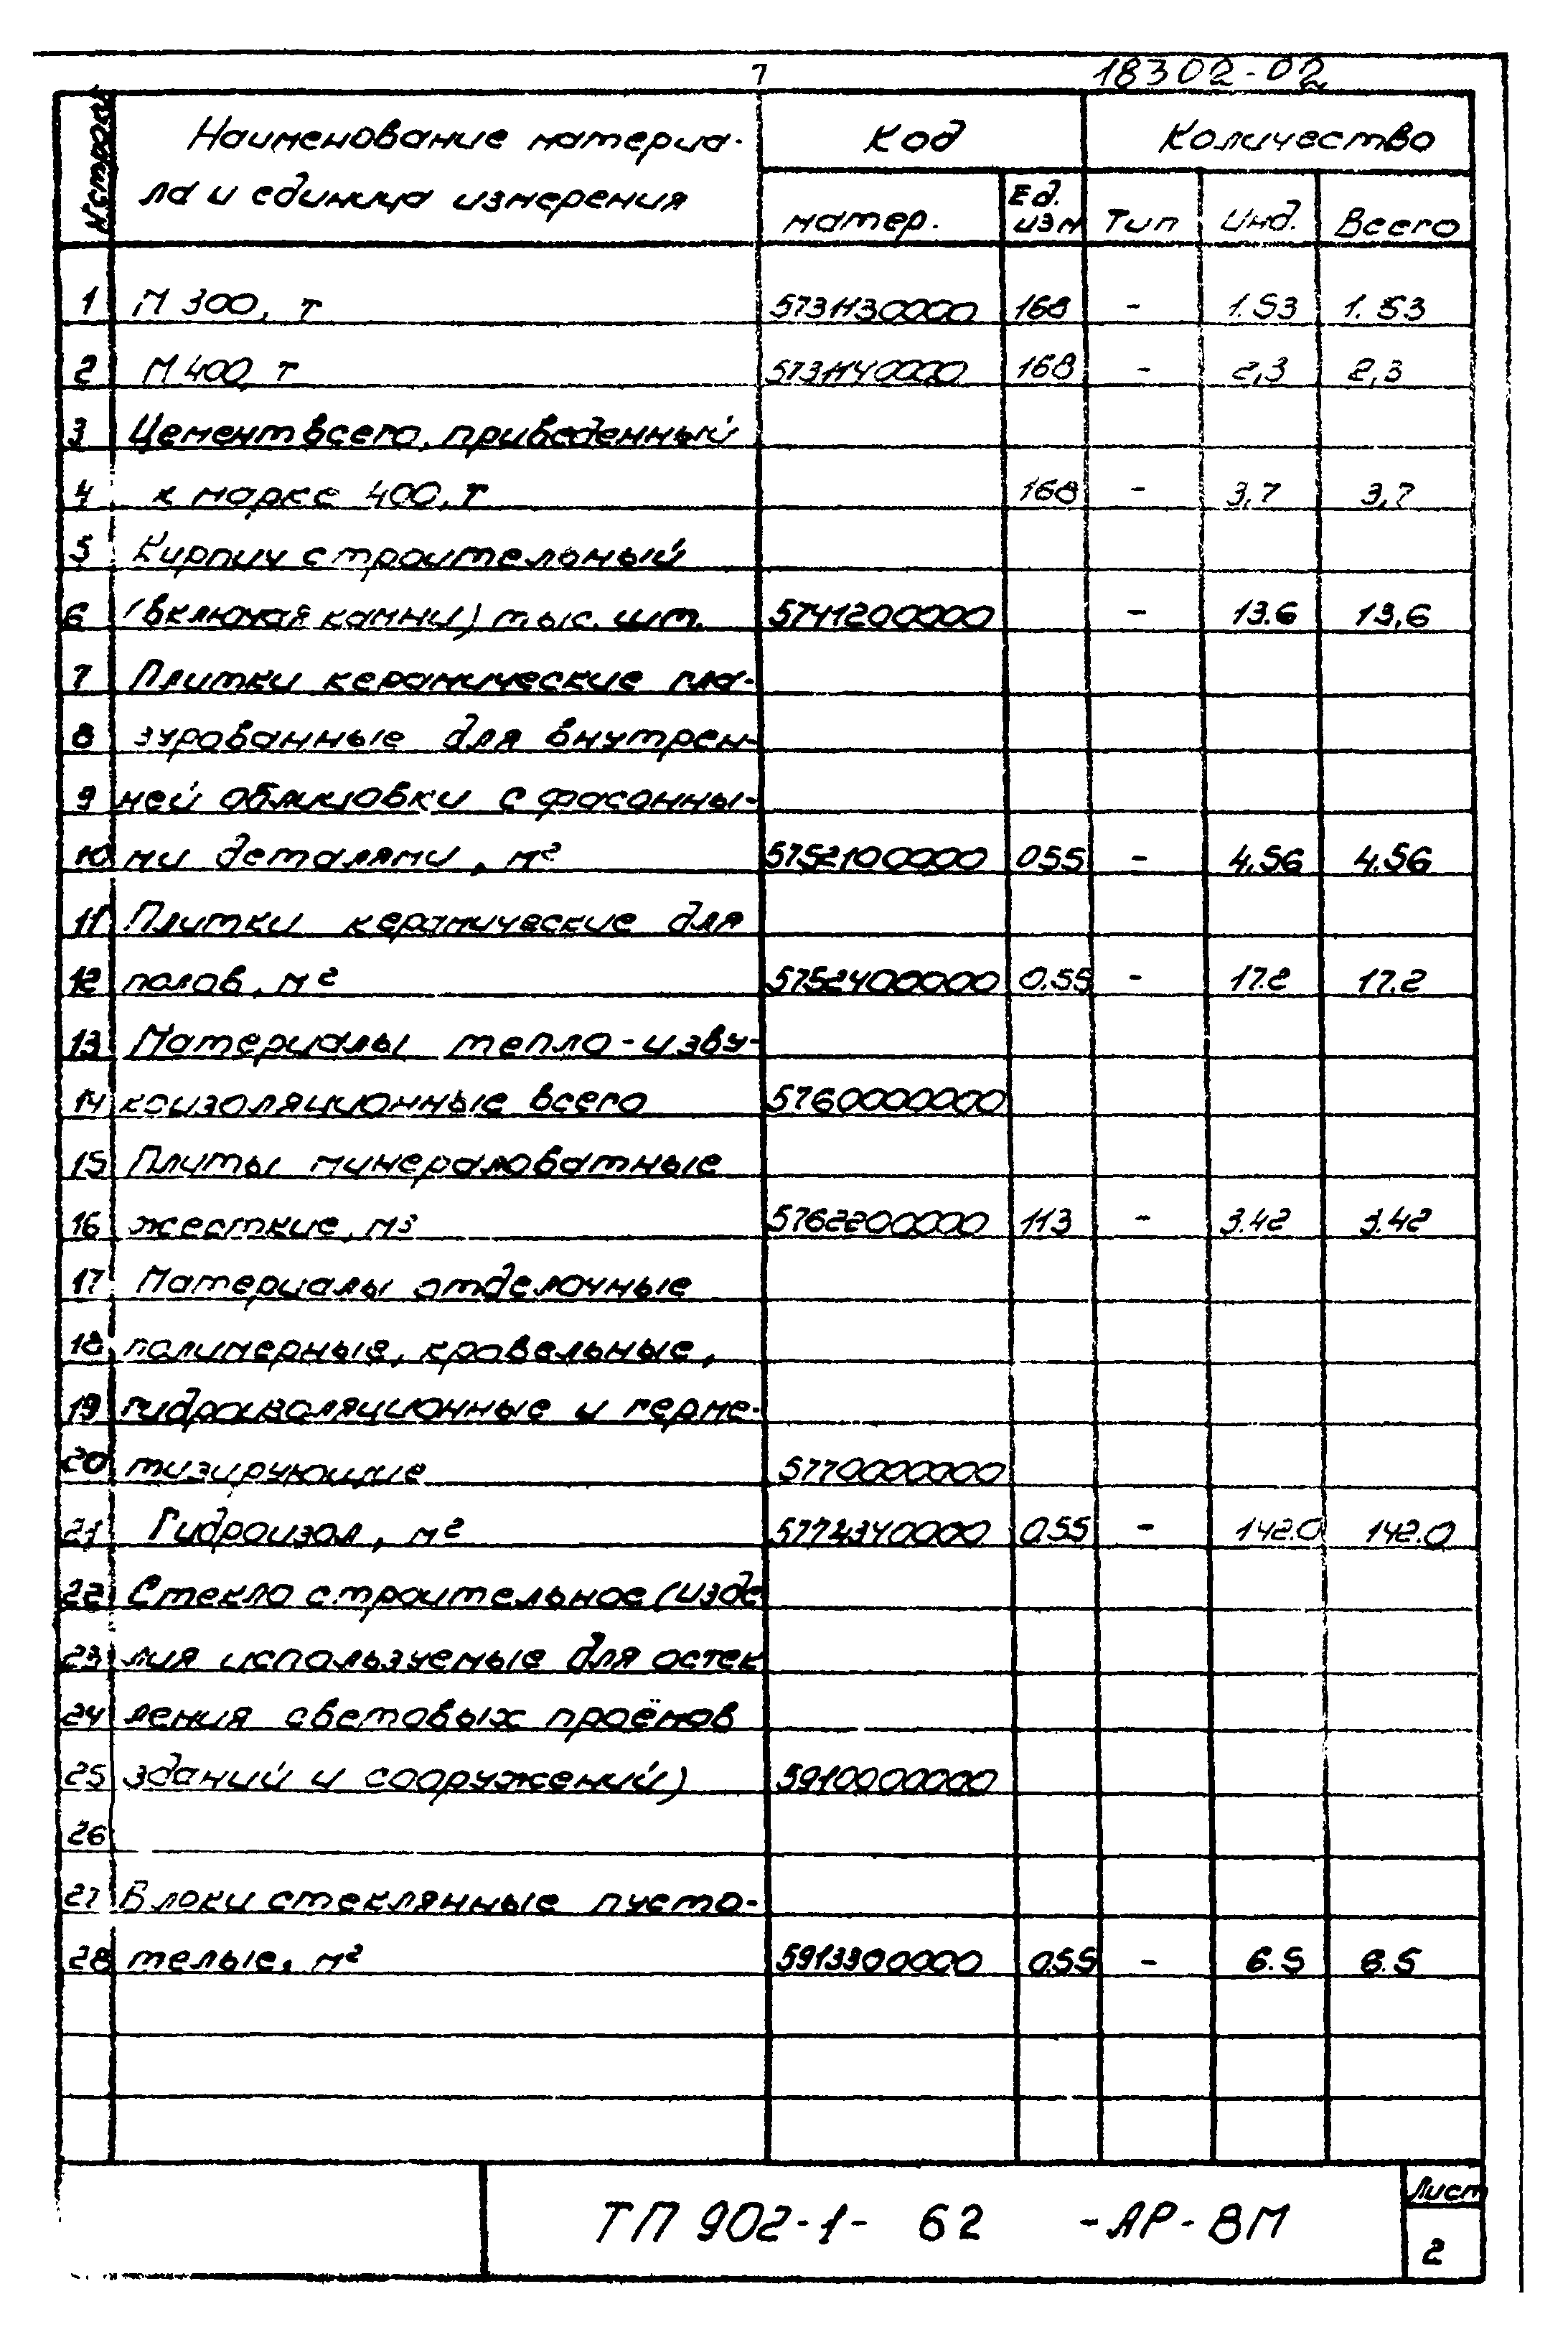 7 18302-02
№ строки Наименование материа- Код Количество
ла и единица измерения матер. Ед. изм Тип Инд. Всего
1 М 300, т 5731130000 168 - 1.53 1.53
2 М 400, т 5731140000 168 - 2,3 2,3
3 Цемент всего, приведенный
4 к марке 400, т 168 - 3,7 3,7
5 Кирпич строительный
6 (включая камни) тыс. шт. 5741200000 - 13.6 13,6
7 Плитки керамические гла-
8 зурованные для внутрен-
9 ней облицовки с фасонны-
10 ми деталями, м² 5752100000 055 - 4.56 4.56
11 Плитки керамические для
12 полов, м² 5752400000 0.55 - 17.2 17.2
13 Материалы тепло-изву-
14 коизоляционные всего 5760000000
15 Плиты минераловатные
16 жесткие, м³ 5762200000 113 - 3.42 3.42
17 Материалы отделочные
18 полимерные, кровельные,
19 гидроизоляционные и герме-
20 тизирующие 5770000000
21 Гидроизол, м² 5774340000 055 - 142.0 142.0
22 Стекло строительное (изде
23 лия используемые для остек
24 ления световых проёмов
25 зданий и сооружений) 5910000000
26
27 Блоки стеклянные пусто-
28 телые, м² 5913300000 055 - 6.5 6.5
ТП 902-1- 62 -АР-ВМ Лист
2